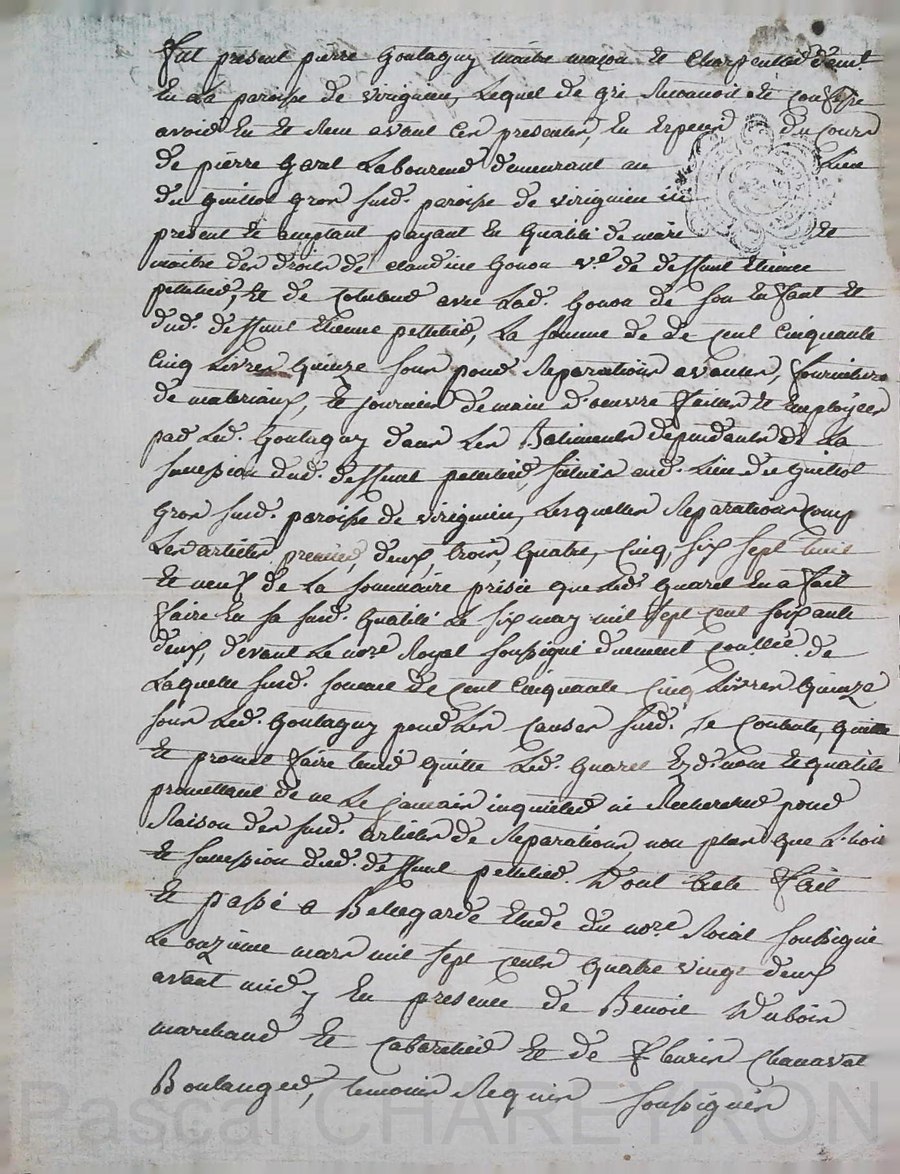 Fut present pierre Goutaguy maitre maçon et charpentier demt
En La paroisse de virignieu, Lequel de gre Reconnoit et confesse
avoir Eu et Receu avant Ces presentes, En Especes du cours
de pierre Garel Laboureur demeurant au Lieu
du guillot gros susd. paroisse de virignieu ici
present et acceptant payant En qualité de mari et
maitre des droits de claudine Gonon ve. de deffunt Etienne
pelletier, et de avec Lad. Gonon de son Enfant et
dud. deffunt Etienne pelletier, La somme de de cent Cinquante
Cinq Livres quinze sous pour Reparations avouées, fournitures
de materiaux, et journées de main d'oeuvre faites et Employées
par Led. Goutaguy dans Les Batiments dependants de La
succession dud. deffunt pelletier, scitués aud. Lieu du Guillot
gros susd. paroisse de virignieu, Lesquelles Reparations comp
Les articles premier, deux, trois, quatre, Cinq, six sept huit
et neuf de La sommaire prisée que Led. Garel En a fait
faire En sa susd. qualité Le six may mil sept cent soixante
deux, devant Le nore Royal soussigné duement conllée. de
Laquelle susd. somme de cent Cinquante Cinq Livres quinze
sous Led. Goutaguy pour Les causes susd. se contente, quitte
et promet faire tenir quitte Led. Garel Esd. nom et qualité
promettant de ne Le jamais inquieter ni Rechercher pour
Raison des susd. articles de Reparations non plus que L'hoirie
et succession dud. deffunt pelletier. Dont acte fait
et passé a Bellegarde Etude du nore Roial soussigné
Le onzieme mars mil sept cents quatre vingt deux
avant midy En presence de Benoit Dubois
marchand et cabaretier et de fleury Chanavat
Boulanger, temoins Requis soussignés
Pascal CHAREYRON